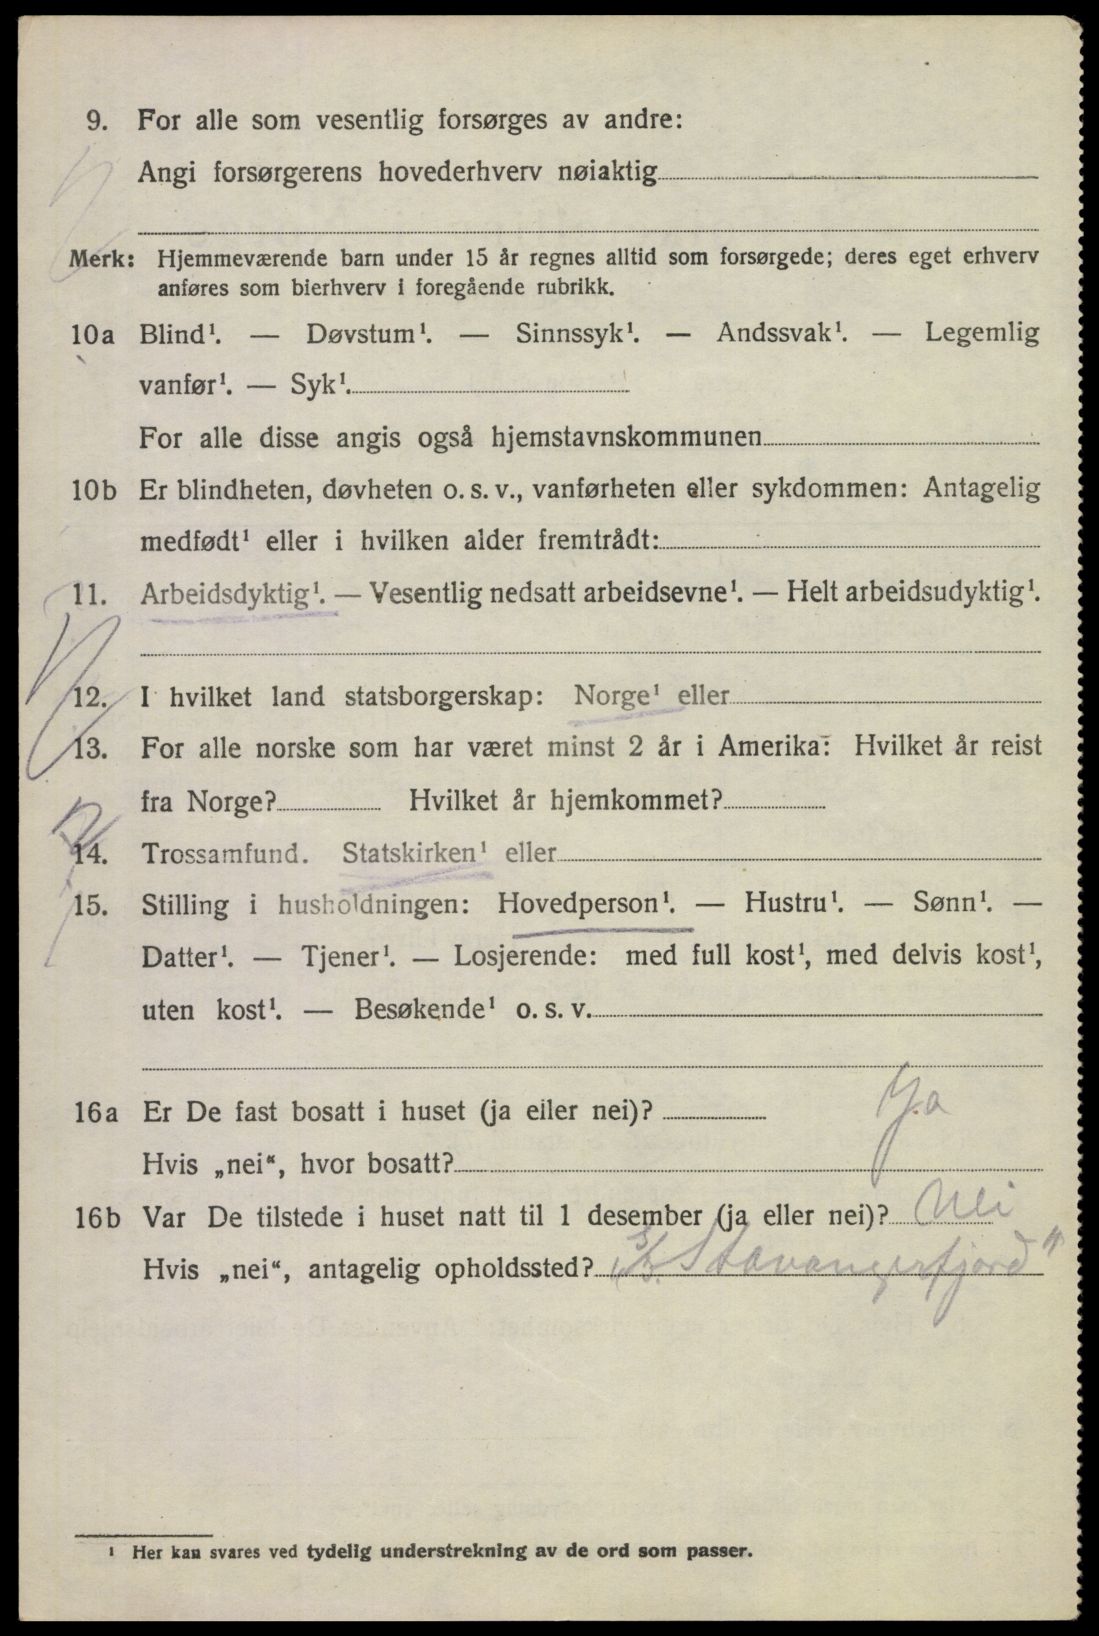 9. For alle som vesentlig forsørges av andre:
Angi forsørgerens hovederhverv nøiaktig
Merk: Hjemmeværende barn under 15 år regnes alltid som forsørgede; deres eget erhverv
anføres som bierhverv i foregående rubrikk.
10a Blind¹. — Døvstum¹. — Sinnssyk¹. — Andssvak¹. — Legemlig
vanfør¹. — Syk¹.
For alle disse angis også hjemstavnskommunen
10b Er blindheten, døvheten o. s. v., vanførheten eller sykdommen: Antagelig
medfødt¹ eller i hvilken alder fremtrådt:
11. Arbeidsdyktig¹. — Vesentlig nedsatt arbeidsevne¹. — Helt arbeidsudyktig¹.
12. I hvilket land statsborgerskap: Norge¹ eller
13. For alle norske som har været minst 2 år i Amerika: Hvilket år reist
fra Norge? Hvilket år hjemkommet?
14. Trossamfund. Statskirken¹ eller
15. Stilling i husholdningen: Hovedperson¹. — Hustru¹. — Sønn¹. —
Datter¹. — Tjener¹. — Losjerende: med full kost¹, med delvis kost¹,
uten kost¹. — Besøkende¹ o. s. v.
16a Er De fast bosatt i huset (ja eller nei)? Ja
Hvis „nei“, hvor bosatt?
16b Var De tilstede i huset natt til 1 desember (ja eller nei)? Nei
Hvis „nei“, antagelig opholdssted? Stavangerfjord"
¹ Her kan svares ved tydelig understrekning av de ord som passer.